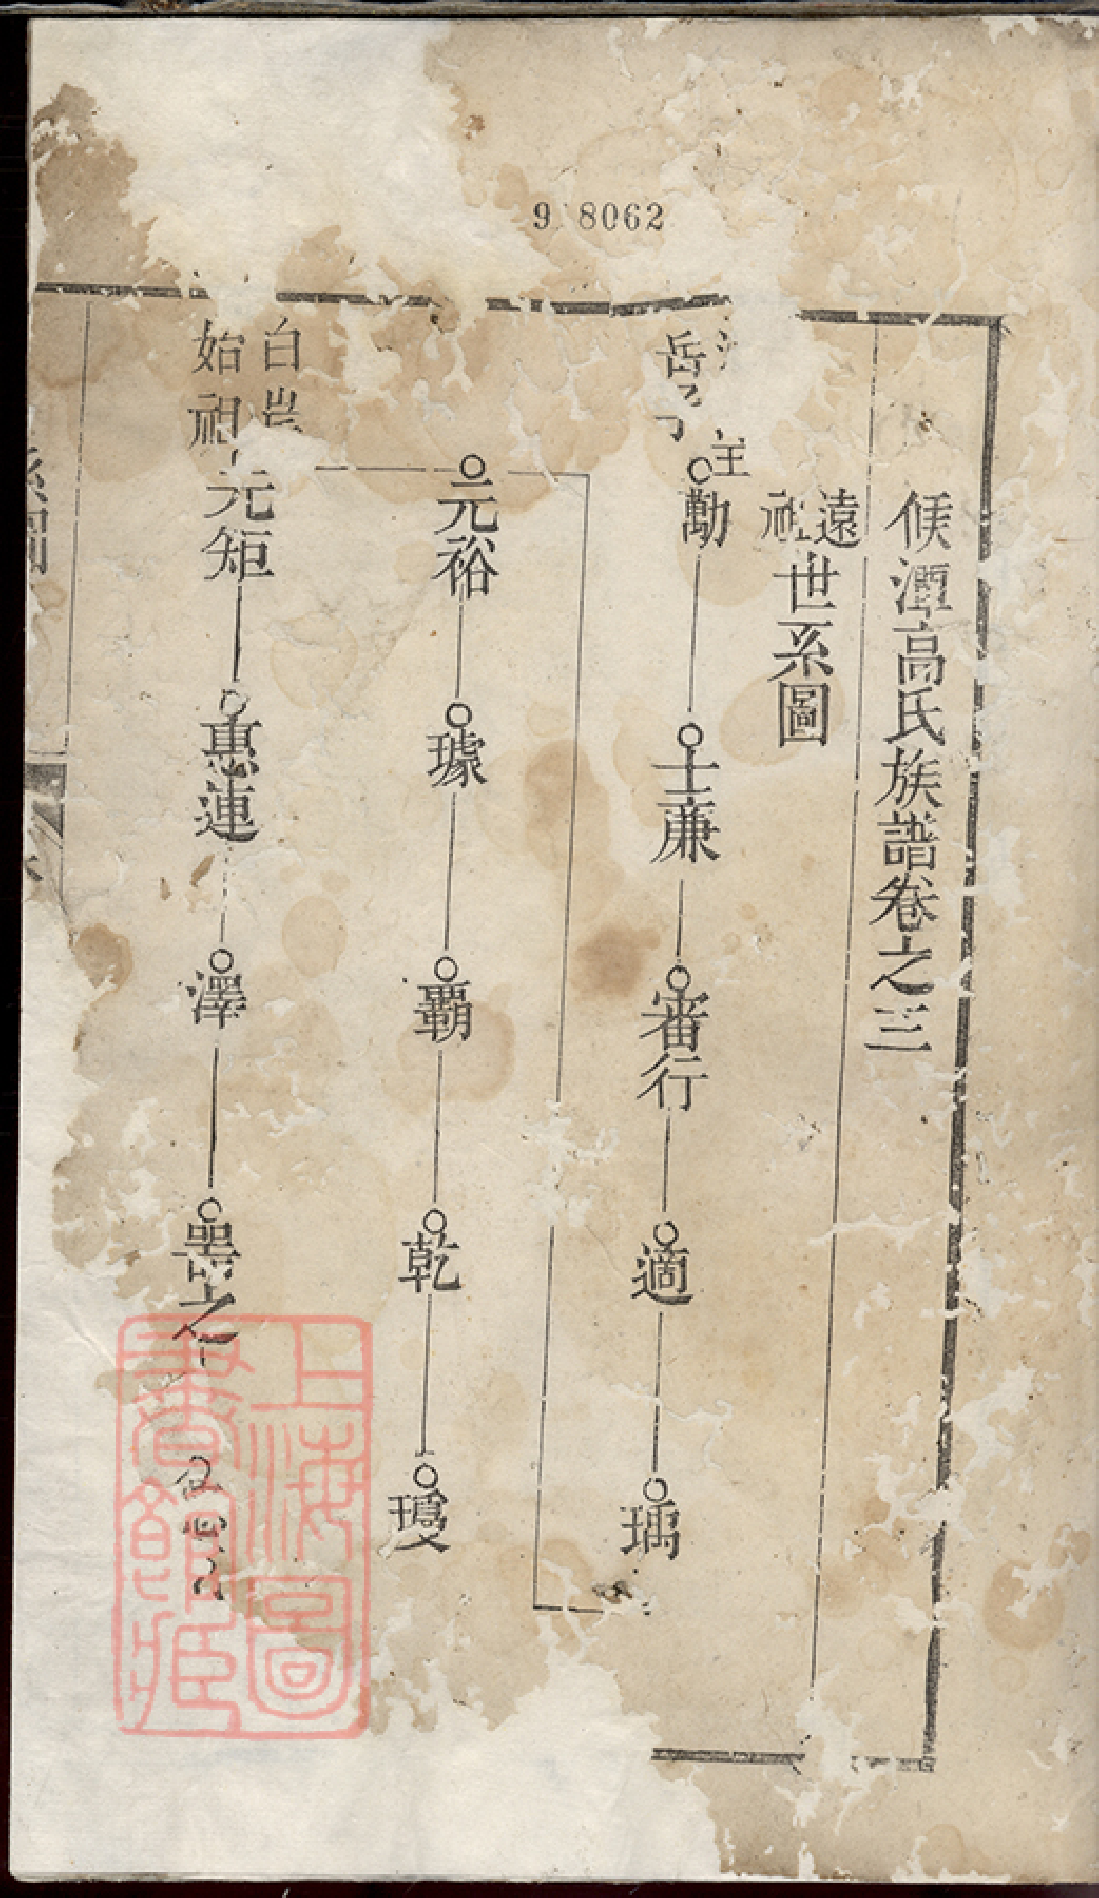 9 8062
候潭高氏族譜卷之三
遠祖世系圖
岳
勱
士廉
審行
適
瑀
元裕
璩
覇
乾
瓊
白
始祖
元矩
惠連
澤
噐之
上海圖
書館藏